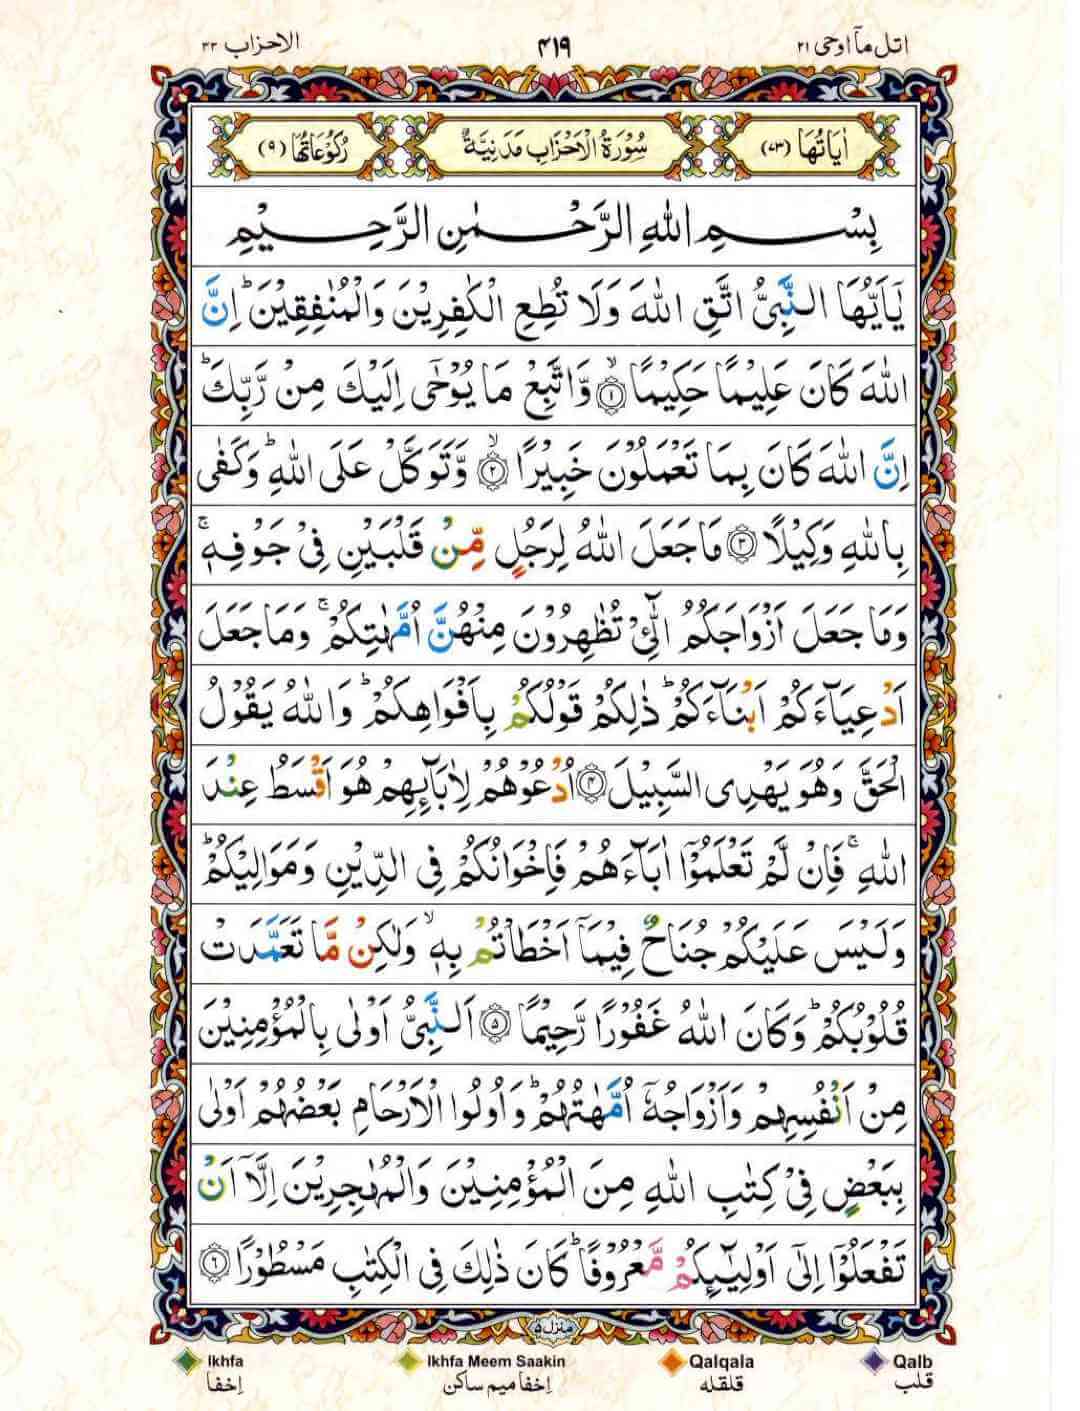 اتل مآ اوحی ۲۱ ۴۱۹ الاحزاب ۳۳
اٰیَاتُهَا (۷۳) سُوْرَةُ الْاَحْزَابِ مَدَنِیَّةٌ رُكُوْعَاتُهَا (۹)
بِسْمِ اللهِ الرَّحْمٰنِ الرَّحِیْمِ
یٰۤاَیُّهَا النَّبِیُّ اتَّقِ اللهَ وَلَا تُطِعِ الْكٰفِرِیْنَ وَالْمُنٰفِقِیْنَ ؕ اِنَّ
اللهَ كَانَ عَلِیْمًا حَكِیْمًا ۙ﴿۱﴾ وَّاتَّبِعْ مَا یُوْحٰۤی اِلَیْكَ مِنْ رَّبِّكَ ؕ
اِنَّ اللهَ كَانَ بِمَا تَعْمَلُوْنَ خَبِیْرًا ۙ﴿۲﴾ وَّتَوَكَّلْ عَلَی اللهِ ؕ وَكَفٰی
بِاللهِ وَكِیْلًا ﴿۳﴾ مَا جَعَلَ اللهُ لِرَجُلٍ مِّنْ قَلْبَیْنِ فِیْ جَوْفِهٖ ۚ
وَمَا جَعَلَ اَزْوَاجَكُمُ الّٰٓـِٔیْ تُظٰهِرُوْنَ مِنْهُنَّ اُمَّهٰتِكُمْ ۚ وَمَا جَعَلَ
اَدْعِیَآءَكُمْ اَبْنَآءَكُمْ ؕ ذٰلِكُمْ قَوْلُكُمْ بِاَفْوَاهِكُمْ ؕ وَاللهُ یَقُوْلُ
الْحَقَّ وَهُوَ یَهْدِی السَّبِیْلَ ﴿۴﴾ اُدْعُوْهُمْ لِاٰبَآئِهِمْ هُوَ اَقْسَطُ عِنْدَ
اللهِ ۚ فَاِنْ لَّمْ تَعْلَمُوْۤا اٰبَآءَهُمْ فَاِخْوَانُكُمْ فِی الدِّیْنِ وَمَوَالِیْكُمْ ؕ
وَلَیْسَ عَلَیْكُمْ جُنَاحٌ فِیْمَاۤ اَخْطَاْتُمْ بِهٖ ۙ وَلٰكِنْ مَّا تَعَمَّدَتْ
قُلُوْبُكُمْ ؕ وَكَانَ اللهُ غَفُوْرًا رَّحِیْمًا ﴿۵﴾ اَلنَّبِیُّ اَوْلٰی بِالْمُؤْمِنِیْنَ
مِنْ اَنْفُسِهِمْ وَاَزْوَاجُهٗۤ اُمَّهٰتُهُمْ ؕ وَاُولُوا الْاَرْحَامِ بَعْضُهُمْ اَوْلٰی
بِبَعْضٍ فِیْ كِتٰبِ اللهِ مِنَ الْمُؤْمِنِیْنَ وَالْمُهٰجِرِیْنَ اِلَّاۤ اَنْ
تَفْعَلُوْۤا اِلٰۤی اَوْلِیٰٓئِكُمْ مَّعْرُوْفًا ؕ كَانَ ذٰلِكَ فِی الْكِتٰبِ مَسْطُوْرًا ﴿۶﴾
منزل ۵
Ikhfa Ikhfa Meem Saakin Qalqala Qalb
اِخفا اِخفا میم ساکن قلقله قلب